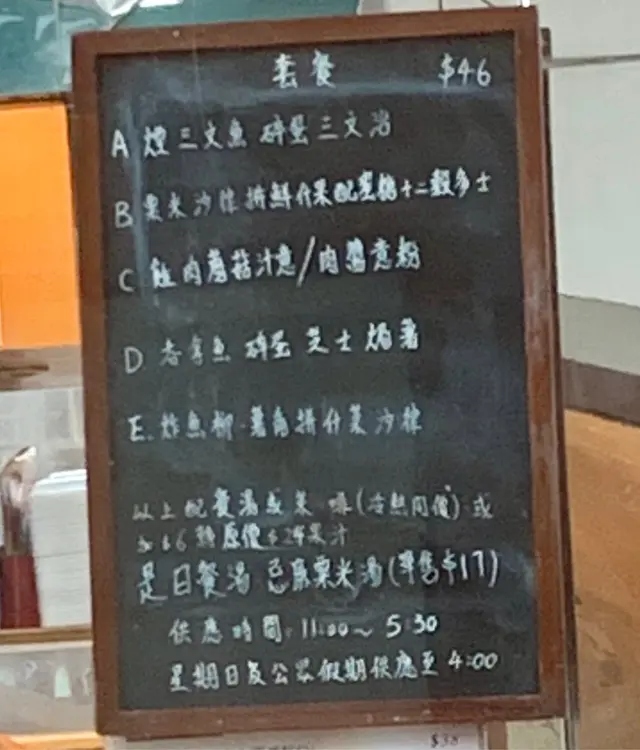 套餐 $46
A 煙三文魚 碎蛋 三文治
B 粟米沙律拼鮮什果配蜜糖十二穀多士
C 肉蘑菇汁意/肉醬意粉
D 吞拿魚 碎蛋 芝士焗薯
E. 炸魚柳 薯角拼什菜沙律
以上配餐湯或茶 啡(冷熱同價) 或
加$6 原價$24果汁
是日餐湯 忌廉粟米湯(零售$17)
供應時間: 11:00~ 5:30
星期日及公眾假期供應至 4:00
$38